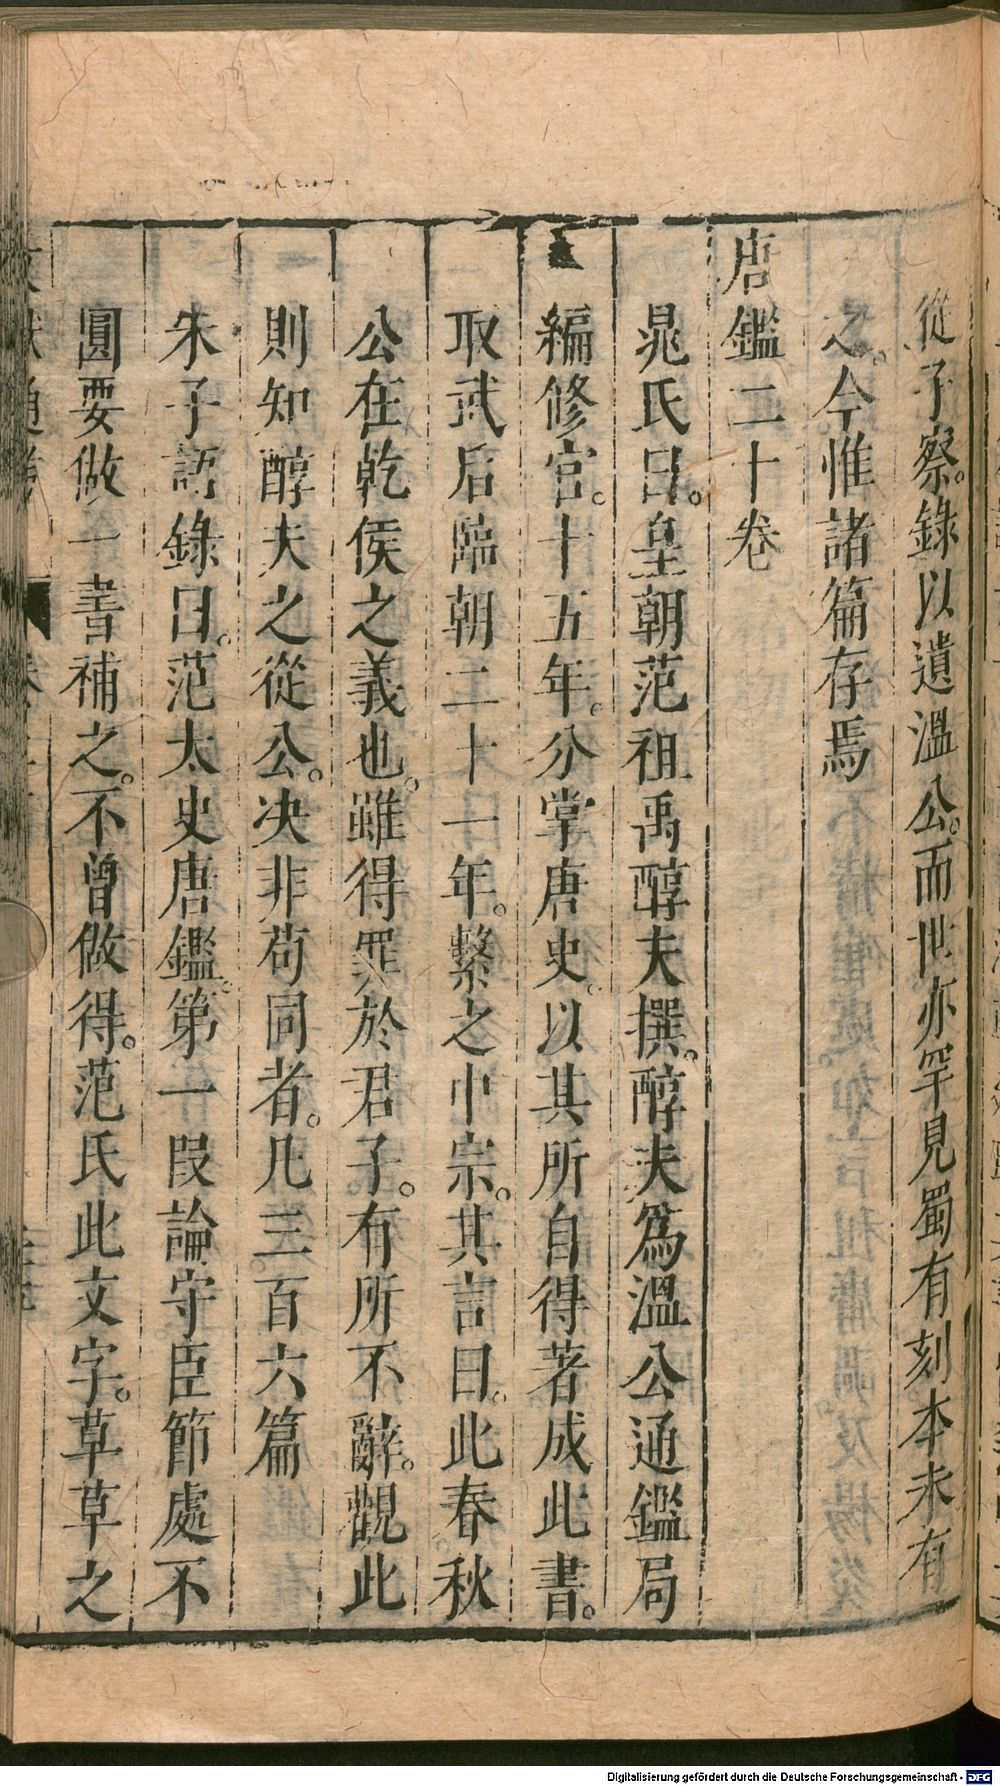 從子察。錄以遺溫公。而世亦罕見蜀有刻本未有
之。今惟諸篇存焉
唐鑑二十卷
晁氏曰。皇朝范祖禹醇夫撰。醇夫爲溫公通鑑局
編修官。十五年。分掌唐史。以其所自得著成此書。
取武后臨朝二十一年。繫之中宗。其言曰。此春秋
公在乾侯之義也。雖得罪於君子。有所不辭。觀此
則知醇夫之從公。决非苟同者。凡三百六篇
朱子語錄曰。范太史唐鑑。第一段論守臣節處不
圓要做一書補之。不曾做得。范氏此文字。草草之
Digitalisierung gefördert durch die Deutsche Forschungsgemeinschaft - DFG